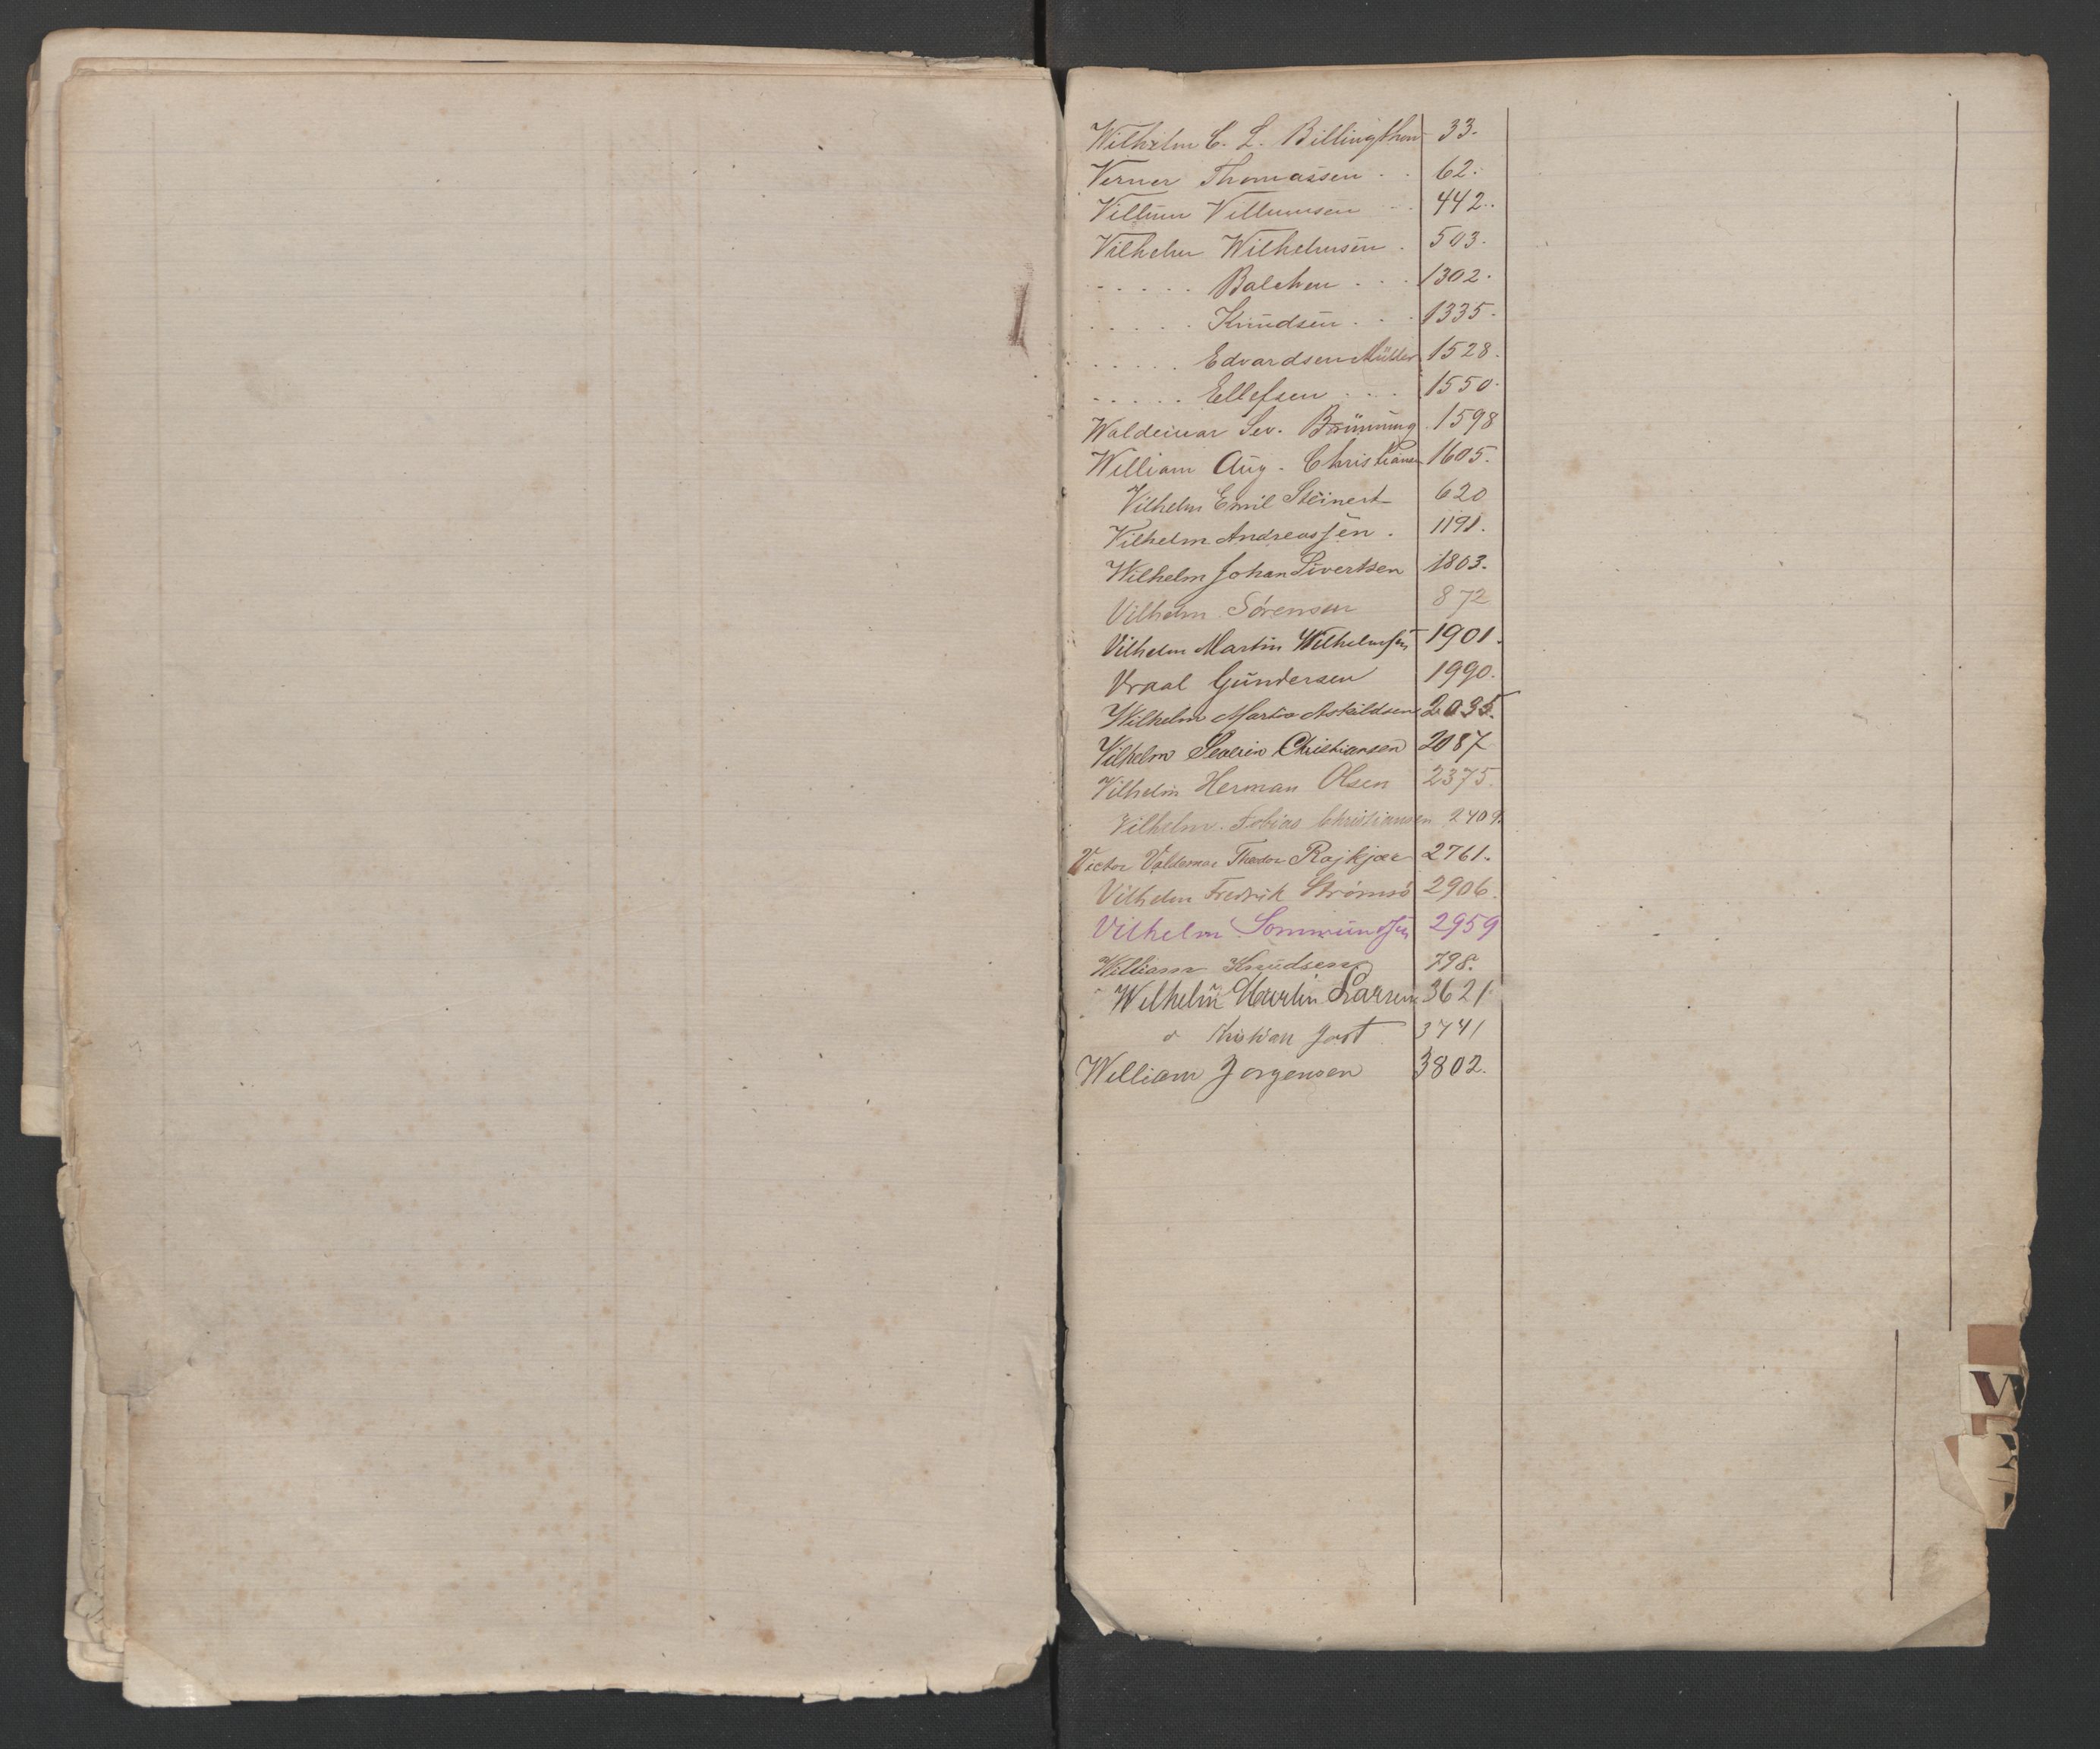 Wilhelm C. L. Billingthon 33.
Verner Thomassen . . 62.
Villum Villumsen - . 442.
Vilhelm Wilhelmsen . 503.
. . . . . Balchen . . . 1302.
. . . . . Knudsen . . . 1335.
. . . . . Edvardsen Müller 1528.
. . . . . Ellefsen . . . . 1550.
Waldemar Sev. Brünning 1598
William Aug. Christiansen 1605.
Vilhelm Emil Steinert 620
Vilhelm Andreassen . 1191.
Wilhelm Johan Sivertsen 1803.
Vilhelm Sörensen 872
Vilhelm Martin Wilhelmsen 1901.
Vraal Gundersen 1990.
Wilhelm Martin Askildsen 2035.
Vilhelm Severin Christiansen 2087
Vilhelm Herman Olsen 2375.
Vilhelm Tobias Christiansen 2409.
Victor Valdemar Theodor Rojkjær 2761.
Vilhelm Fredrik Strömsö 2906.
Vilhelm 2959
William Knudsen 798.
Wilhelm Martin Larsen 3621
" Kristian Jost 3741
William Jorgensen 3802.
W